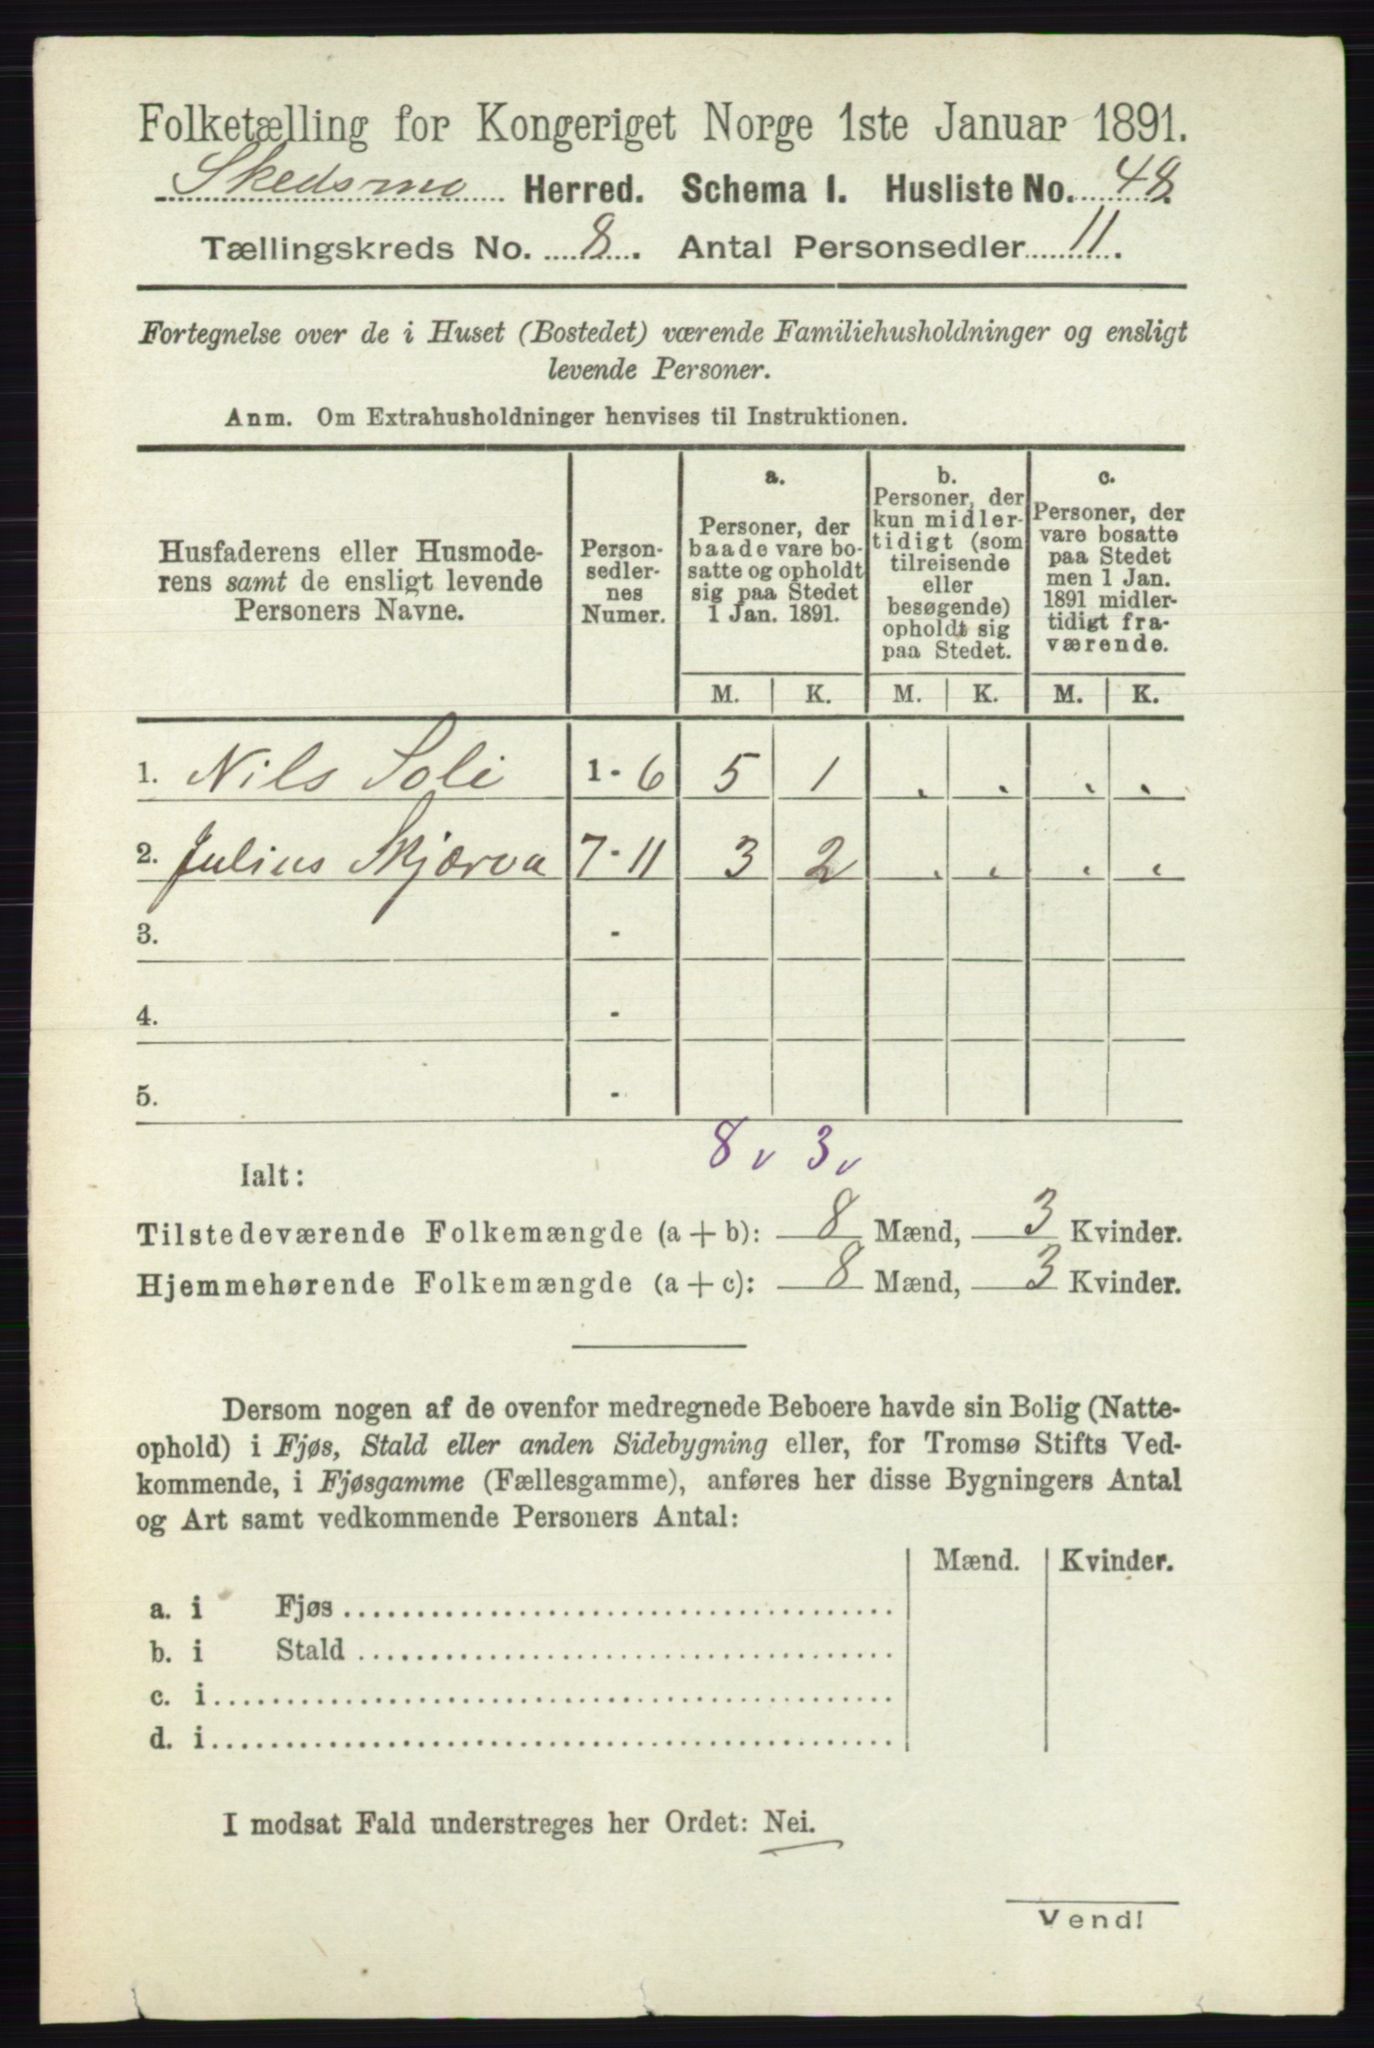 Folketælling for Kongeriget Norge 1ste Januar 1891.
Skedsmo Herred. Schema I. Husliste No. 48.
Tællingskreds No. 8. Antal Personsedler 11.
Fortegnelse over de i Huset (Bostedet) værende Familiehusholdninger og ensligt
levende Personer.
Anm. Om Extrahusholdninger henvises til Instruktionen.
Husfaderens eller Husmode-
rens samt de ensligt levende
Personers Navne.
Person-
sedler-
nes
Numer.
a.
Personer, der
baade vare bo-
satte og opholdt
sig paa Stedet
1 Jan. 1891.
b.
Personer, der
kun midler-
tidigt (som
tilreisende
eller
besøgende)
opholdt sig
paa Stedet.
c.
Personer, der
vare bosatte
paa Stedet
men 1 Jan.
1891 midler-
tidigt fra-
værende.
M. K. M. K. M. K.
1. Nils Soli 1 - 6 5 1 . . . .
2. Julius Skjærva 7 - 11 3 2 . . . .
3. -
4. -
5. -
8 v 3 v
Ialt:
Tilstedeværende Folkemængde (a + b): 8 Mænd, 3 Kvinder.
Hjemmehørende Folkemængde (a + c): 8 Mænd, 3 Kvinder.
Dersom nogen af de ovenfor medregnede Beboere havde sin Bolig (Natte-
ophold) i Fjøs, Stald eller anden Sidebygning eller, for Tromsø Stifts Ved-
kommende, i Fjøsgamme (Fællesgamme), anføres her disse Bygningers Antal
og Art samt vedkommende Personers Antal:
Mænd. Kvinder.
a. i Fjøs
b. i Stald
c. i
d. i
I modsat Fald understreges her Ordet: Nei.
Vend!